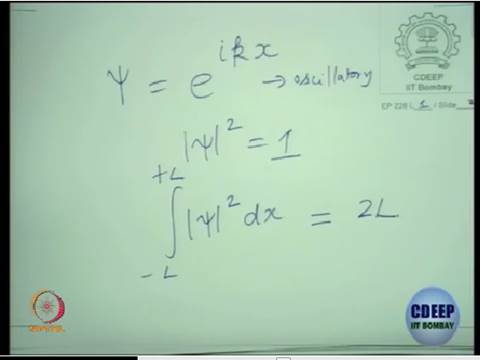 ψ = e^{ikx} → oscillatory
|ψ|² = 1
∫_{-L}^{+L} |ψ|² dx = 2L
CDEEP
IIT Bombay
EP 228 L 1 / Slide
NPTEL
CDEEP
IIT BOMBAY